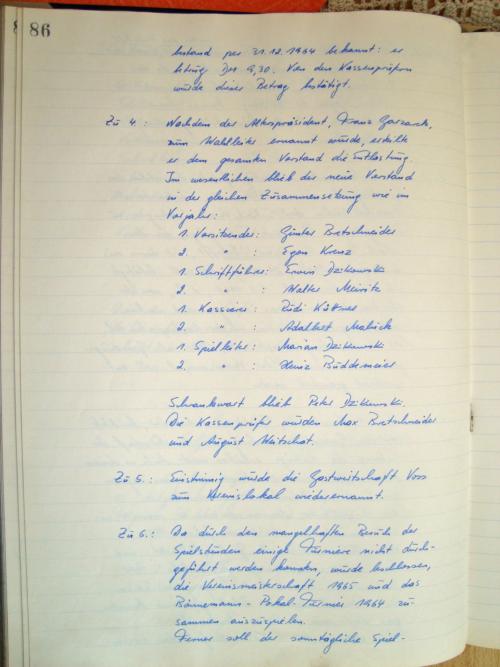 86
bestand per 31.12.1964 bekannt: er
betrug DM 9,30. Von den Kassenprüfern
wurde dieser Betrag bestätigt.
Zu 4.: Nachdem der Alterspräsident, Franz
zum Wahlleiter ernannt wurde, erteilte
er dem gesamten Vorstand die Entlastung.
Im wesentlichen blieb der neue Vorstand
in der gleichen Zusammensetzung wie im
Vorjahr:
1. Vorsitzender: Günter Bretschneider
2. " : Egon Krenz
1. Schriftführer: Erwin Dzikowski
2. " : Walter
1. Kassierer: Rudi Küttner
2. " : Adalbert
1. Spielleiter: Marian Dzikowski
2. " : Heinz Büddemeier
Schrankwart blieb Peter Dzikowski.
Die Kassenprüfer wurden Max Bretschneider
und August
Zu 5.: Einstimmig wurde die Gastwirtschaft Voss
zum Vereinslokal wiederernannt.
Zu 6.: Da durch den mangelhaften Besuch der
Spielstunden einige Turniere nicht durch-
geführt werden konnten, wurde beschlossen,
die Vereinsmeisterschaft 1965 und das
Bönnemann-Pokal-Turnier 1964 zu-
sammen auszuspielen.
Ferner soll der sonntägliche Spiel-